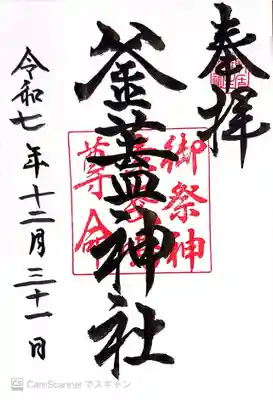 奉拝
釜蓋神社
御祭神
等命
令和七年十二月三十一日
CS CamScanner でスキャン